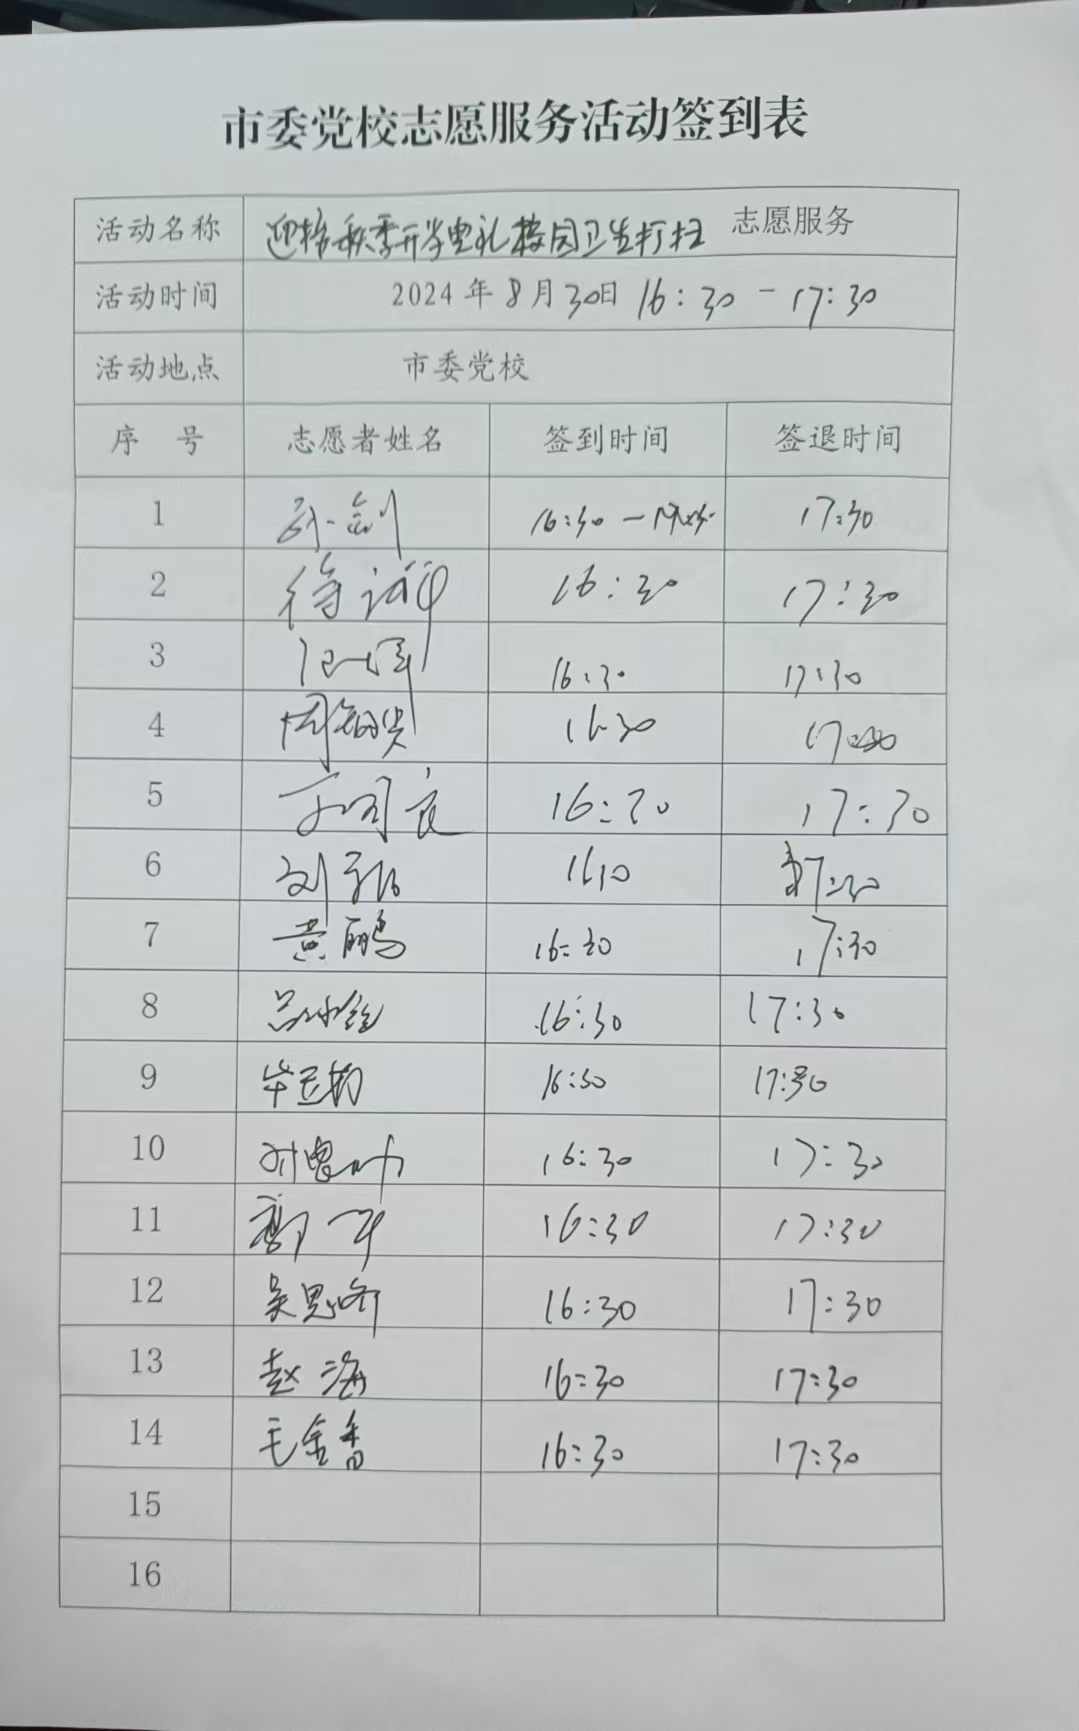 市委党校志愿服务活动签到表
活动名称 迎接秋季开学典礼校园卫生打扫 志愿服务
活动时间 2024年8月30日 16:30-17:30
活动地点 市委党校
序 号 志愿者姓名 签到时间 签退时间
1 孙剑 16:30 17:30
2 徐 16:30 17:30
3 16:30 17:30
4 周 16:30 17:
5 良 16:30 17:30
6 刘 17:30
7 黄鹏 16:30 17:30
8 吕 16:30 17:30
9 毕 16:30 17:30
10 16:30 17:30
11 16:30 17:30
12 吴思 16:30 17:30
13 赵海 16:30 17:30
14 毛金香 16:30 17:30
15
16